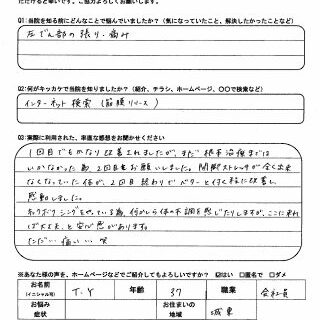 だけると幸いです。ご協力よろしくお願いします。
Q1:当院を知る前にどんなことで悩んでいましたか？（気になっていたこと、解決したかったことなど）
左でん部の張り・痛み
Q2:何がキッカケで当院を知りましたか？（紹介、チラシ、ホームページ、〇〇で検索など）
インターネット検索（筋膜リリース）
Q3:実際に利用された、率直な感想をお聞かせください
1回目でもかなり改善されましたが、まだ根本治療までは
いかなかった為、2回目をお願いしました。開脚ストレッチが全く出来
なくなっていた体が、2回目終わりでベターと行く程に改善し、
感動しました。
キックボクシングをやっている為、何かしら体の不調を感じたりしますが、ここに来れ
ば大丈夫と安心感があります。
ただ… 痛い… 笑
※あなた様の声を、ホームページなどでご紹介してもよろしいですか？ ☑はい □匿名で □ダメ
お名前（イニシャル可） T.Y 年齢 37 職業 会社員
お悩み症状 お住まいの地域 城東